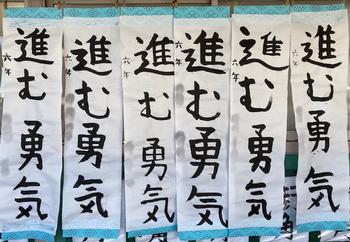 進む勇気
六年
進む勇気
六年
進む勇気
六年
進む勇気
六年
進む勇気
六年
進む勇気
六年